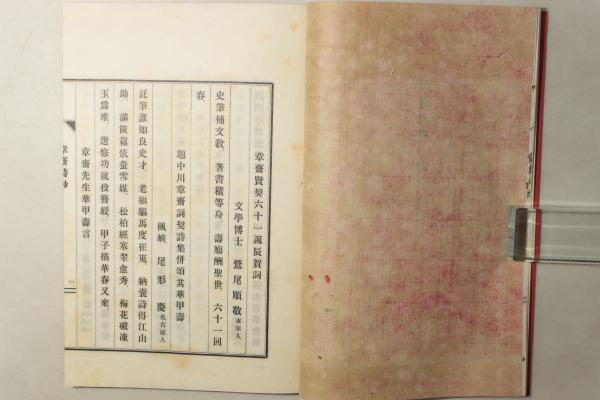 章齋賢契六十一誕辰賀詞
文學博士 鷲尾順敬 東京人
史筆補文敎。著書積等身。壽觴酬聖世。六十一回
春。
題中川章齋詞契詩集併頌其華甲壽
楓峽 尾形 慶 名古屋人
託筆誰如良史才。老驅驅馬度崔嵬。納囊詩得江山
助。滿篋篇依螢雪媒。松柏經寒翠愈秀。梅花破凍
玉爲堆。選修功就投簪綬。甲子描華春又來。
章齋先生華甲壽言
章齋詩鈔
一